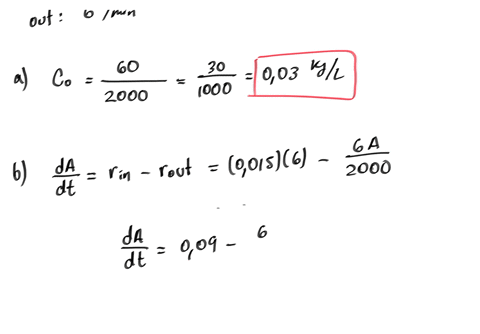 out: 6 /min
a) C₀ = 60/2000 = 30/1000 = 0,03 kg/L
b) dA/dt = rin - rout = (0,015)(6) - 6A/2000
dA/dt = 0,09 - 6